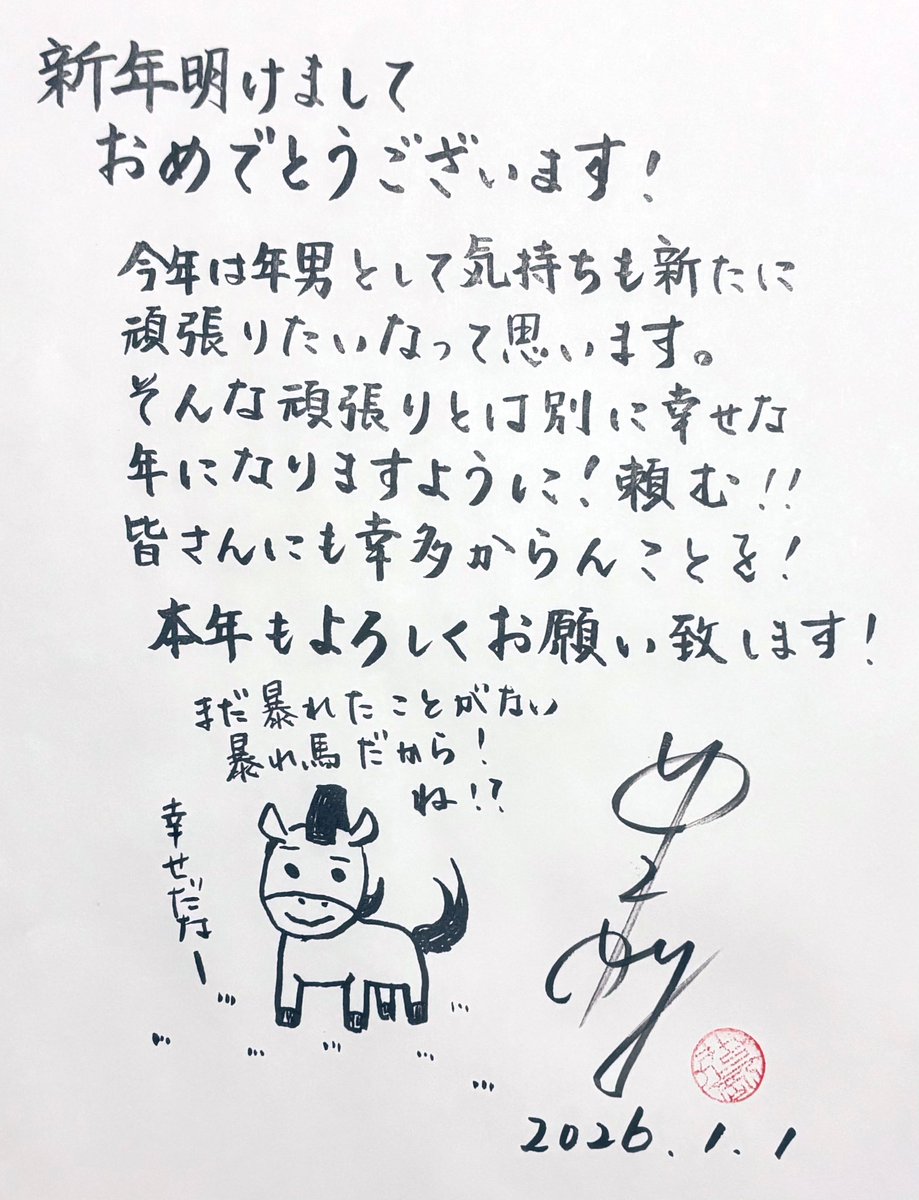 新年明けまして
おめでとうございます!
今年は年男として気持ちも新たに
頑張りたいなって思います。
そんな頑張りとは別に幸せな
年になりますように!頼む!!
皆さんにも幸多からんことを!
本年もよろしくお願い致します!
まだ暴れたことがない
暴れ馬だから!
ね!?
幸せだなー
2026.1.1